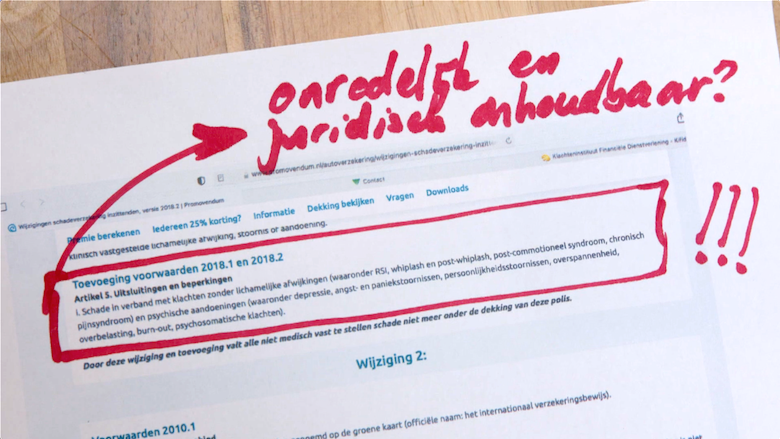 onredelijk en
juridisch onhoudbaar?
!!!
www.promovendum.nl/autoverzekering/wijzigingen-schadeverzekering-inzitt
Klachteninstituut Financiële Dienstverlening - Kifid
Contact
Wijzigingen schadeverzekering inzittenden, versie 2018.2 | Promovendum
Premie berekenen Iedereen 25% korting? Informatie Dekking bekijken Vragen Downloads
klinisch vastgestelde lichamelijke afwijking, stoornis or aandoening.
Toevoeging voorwaarden 2018.1 en 2018.2
Artikel 5. Uitsluitingen en beperkingen
i. Schade in verband met klachten zonder lichamelijke afwijkingen (waaronder RSI, whiplash en post-whiplash, post-commotioneel syndroom, chronisch
pijnsyndroom) en psychische aandoeningen (waaronder depressie, angst- en paniekstoornissen, persoonlijkheidsstoornissen, overspannenheid,
overbelasting, burn-out, psychosomatische klachten).
Door deze wijziging en toevoeging valt alle niet medisch vast te stellen schade niet meer onder de dekking van deze polis.
Wijziging 2:
Voorwaarden 2010.1
op de groene kaart (officiële naam: het internationaal verzekeringsbewijs).